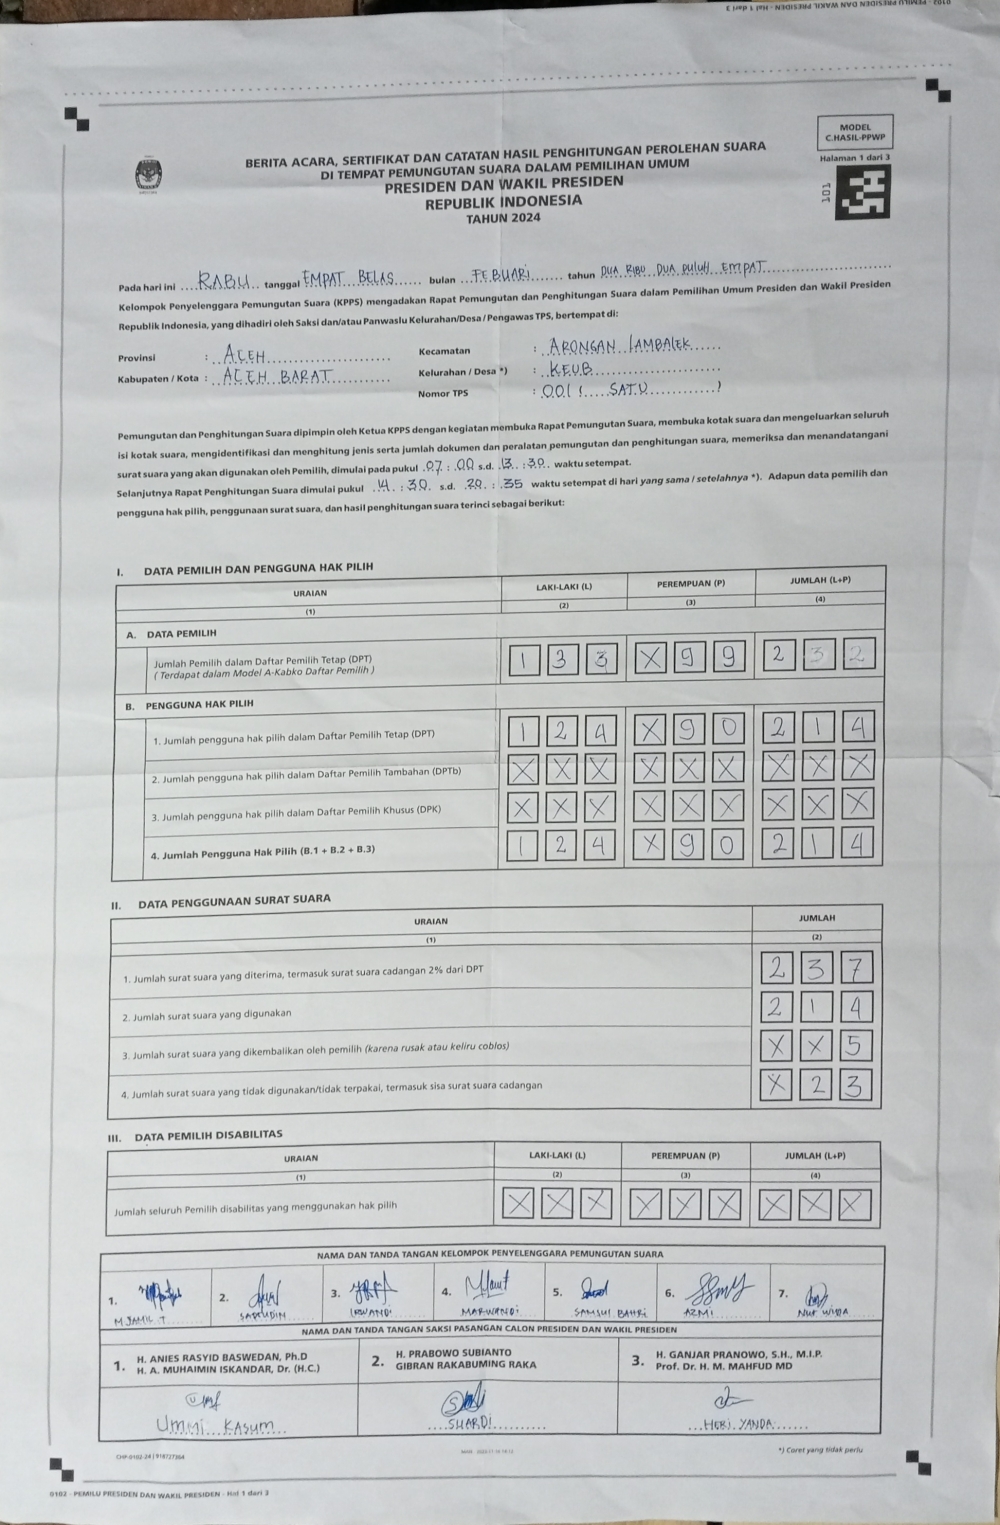 0102 - PEMILU PRESIDEN DAN WAKIL PRESIDEN - Hal 1 dari 3
MODEL
C.HASIL-PPWP
Halaman 1 dari 3
101
BERITA ACARA, SERTIFIKAT DAN CATATAN HASIL PENGHITUNGAN PEROLEHAN SUARA
DI TEMPAT PEMUNGUTAN SUARA DALAM PEMILIHAN UMUM
PRESIDEN DAN WAKIL PRESIDEN
REPUBLIK INDONESIA
TAHUN 2024
Pada hari ini RABU tanggal EMPAT BELAS bulan FEBUARI tahun DUA RIBU DUA PULUH EMPAT
Kelompok Penyelenggara Pemungutan Suara (KPPS) mengadakan Rapat Pemungutan dan Penghitungan Suara dalam Pemilihan Umum Presiden dan Wakil Presiden
Republik Indonesia, yang dihadiri oleh Saksi dan/atau Panwaslu Kelurahan/Desa / Pengawas TPS, bertempat di:
Provinsi : ACEH
Kecamatan : ARONGAN LAMBALEK
Kabupaten / Kota : ACEH BARAT
Kelurahan / Desa *) : KEUB
Nomor TPS : 001 ( SATU )
Pemungutan dan Penghitungan Suara dipimpin oleh Ketua KPPS dengan kegiatan membuka Rapat Pemungutan Suara, membuka kotak suara dan mengeluarkan seluruh
isi kotak suara, mengidentifikasi dan menghitung jenis serta jumlah dokumen dan peralatan pemungutan dan penghitungan suara, memeriksa dan menandatangani
surat suara yang akan digunakan oleh Pemilih, dimulai pada pukul 07 : 00 s.d. 13 : 30 waktu setempat.
Selanjutnya Rapat Penghitungan Suara dimulai pukul 14 : 30 s.d. 20 : 35 waktu setempat di hari yang sama / setelahnya *). Adapun data pemilih dan
pengguna hak pilih, penggunaan surat suara, dan hasil penghitungan suara terinci sebagai berikut:
I. DATA PEMILIH DAN PENGGUNA HAK PILIH
URAIAN LAKI-LAKI (L) PEREMPUAN (P) JUMLAH (L+P)
(1) (2) (3) (4)
A. DATA PEMILIH
Jumlah Pemilih dalam Daftar Pemilih Tetap (DPT) 1 3 3 X 9 9 2 3 2
( Terdapat dalam Model A-Kabko Daftar Pemilih )
B. PENGGUNA HAK PILIH
1. Jumlah pengguna hak pilih dalam Daftar Pemilih Tetap (DPT) 1 2 4 X 9 0 2 1 4
2. Jumlah pengguna hak pilih dalam Daftar Pemilih Tambahan (DPTb) X X X X X X X X X
3. Jumlah pengguna hak pilih dalam Daftar Pemilih Khusus (DPK) X X X X X X X X X
4. Jumlah Pengguna Hak Pilih (B.1 + B.2 + B.3) 1 2 4 X 9 0 2 1 4
II. DATA PENGGUNAAN SURAT SUARA
URAIAN JUMLAH
(1) (2)
1. Jumlah surat suara yang diterima, termasuk surat suara cadangan 2% dari DPT 2 3 7
2. Jumlah surat suara yang digunakan 2 1 4
3. Jumlah surat suara yang dikembalikan oleh pemilih (karena rusak atau keliru coblos) X X 5
4. Jumlah surat suara yang tidak digunakan/tidak terpakai, termasuk sisa surat suara cadangan X 2 3
III. DATA PEMILIH DISABILITAS
URAIAN LAKI-LAKI (L) PEREMPUAN (P) JUMLAH (L+P)
(1) (2) (3) (4)
Jumlah seluruh Pemilih disabilitas yang menggunakan hak pilih X X X X X X X X X
NAMA DAN TANDA TANGAN KELOMPOK PENYELENGGARA PEMUNGUTAN SUARA
1. 2. 3. 4. 5. 6. 7.
M JAMIL. T SAPRUDIN IRWANDI MARWANDI SAMSUL BAHRI AZMI NUR WIDA
NAMA DAN TANDA TANGAN SAKSI PASANGAN CALON PRESIDEN DAN WAKIL PRESIDEN
1. H. ANIES RASYID BASWEDAN, Ph.D
H. A. MUHAIMIN ISKANDAR, Dr. (H.C.)
2. H. PRABOWO SUBIANTO
GIBRAN RAKABUMING RAKA
3. H. GANJAR PRANOWO, S.H., M.I.P.
Prof. Dr. H. M. MAHFUD MD
UMMI KASUM SUARDI HERI YANDA
CHP-0102-24 | 918727304
*) Coret yang tidak perlu
0102 - PEMILU PRESIDEN DAN WAKIL PRESIDEN - Hal 1 dari 3